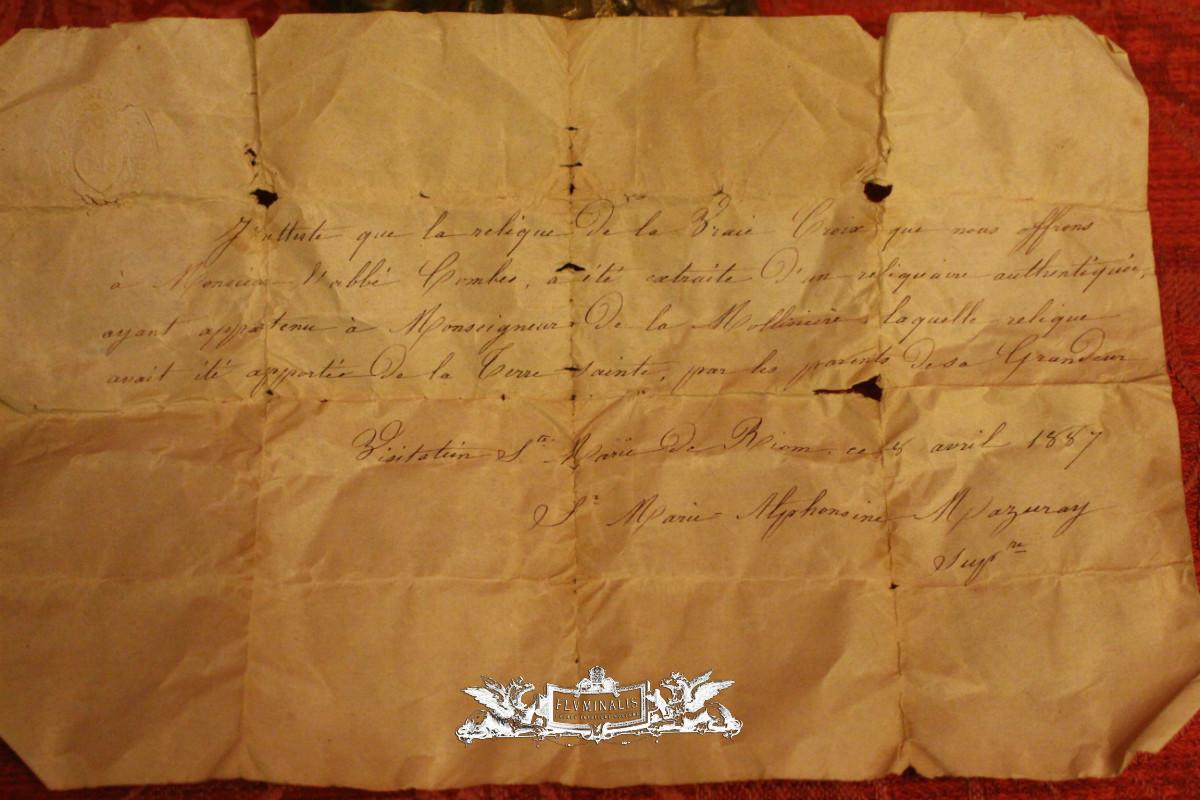 J'atteste que la relique de la Vraie Croix que nous offrons
à Monsieur l'abbé Combes, a été extraite d'un reliquaire authentique,
ayant appartenu à Monseigneur de la Mollinière laquelle relique
avait été apportée de la Terre sainte, par les parents de sa Grandeur
Visitation Ste Marie de Riom, ce 8 avril 1887
Sr Marie Alphonsine Mazuray
Supre
FLVMINALIS